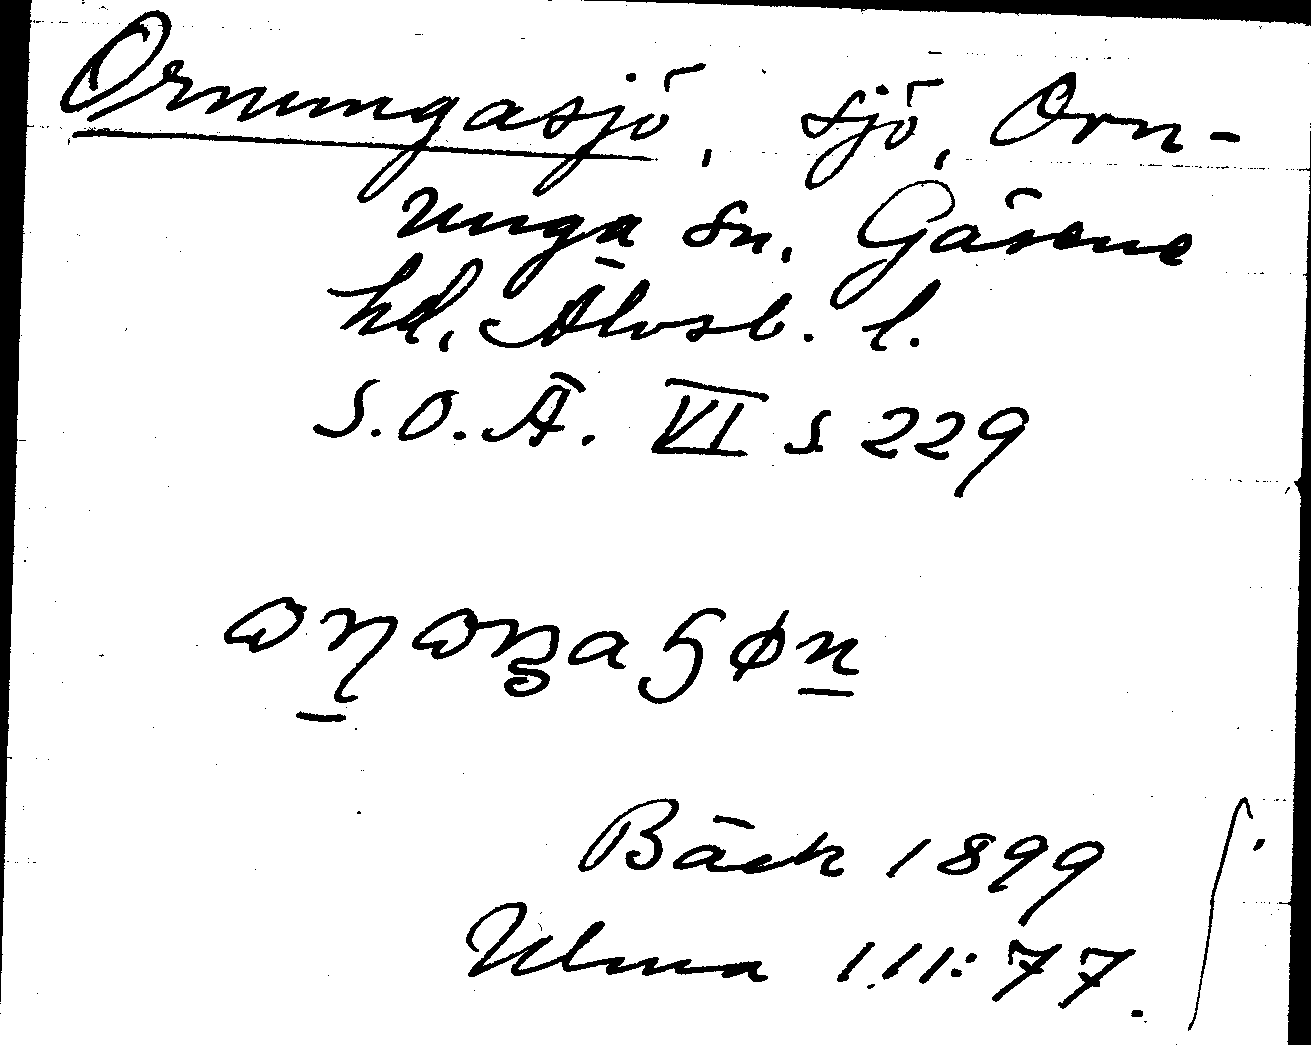 Ornungasjö, sjö, Orn-
unga sn. Gäsene
hd. Älvsb. l.
S.O.Ä. VI s 229
Bäck 1899
Ulma 111:77.